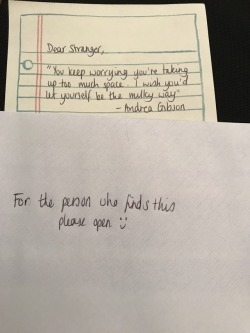 Dear Stranger,
"You keep worrying you're taking
up too much space. I wish you'd
let yourself be the milky way"
- Andrea Gibson
For the person who finds this
please open :)